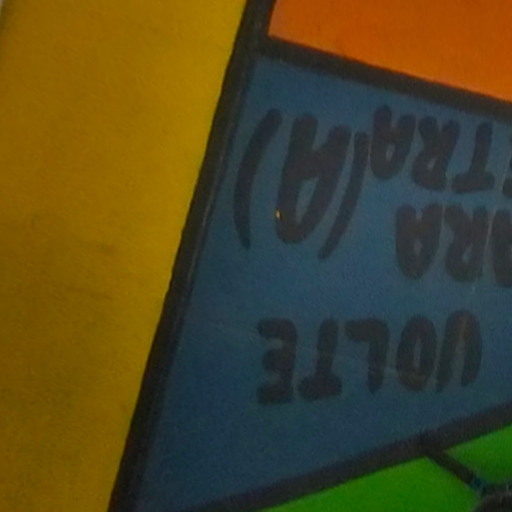 VOLTE
ARA
ETRA (A)